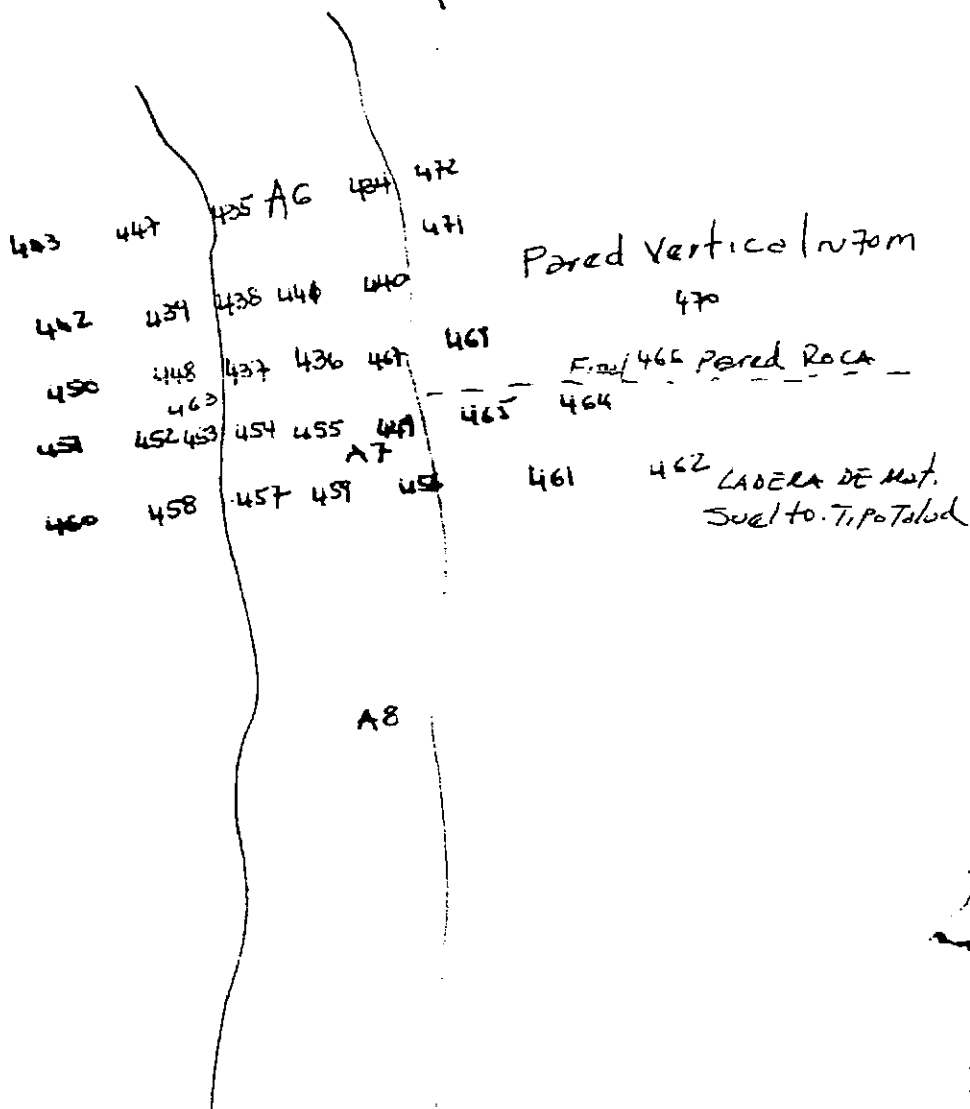 472
435 A6 434
443 447
471
Pared Vertical ~70m
442 439 438 446 440
470
450 448 437 436 467 469
Final 466 Pared ROCA
463
465 464
451 452 453 454 455 449
A7
460 458 457 459 456 461 462 LADERA DE Mat.
Suelto. Tipo Talud
A8